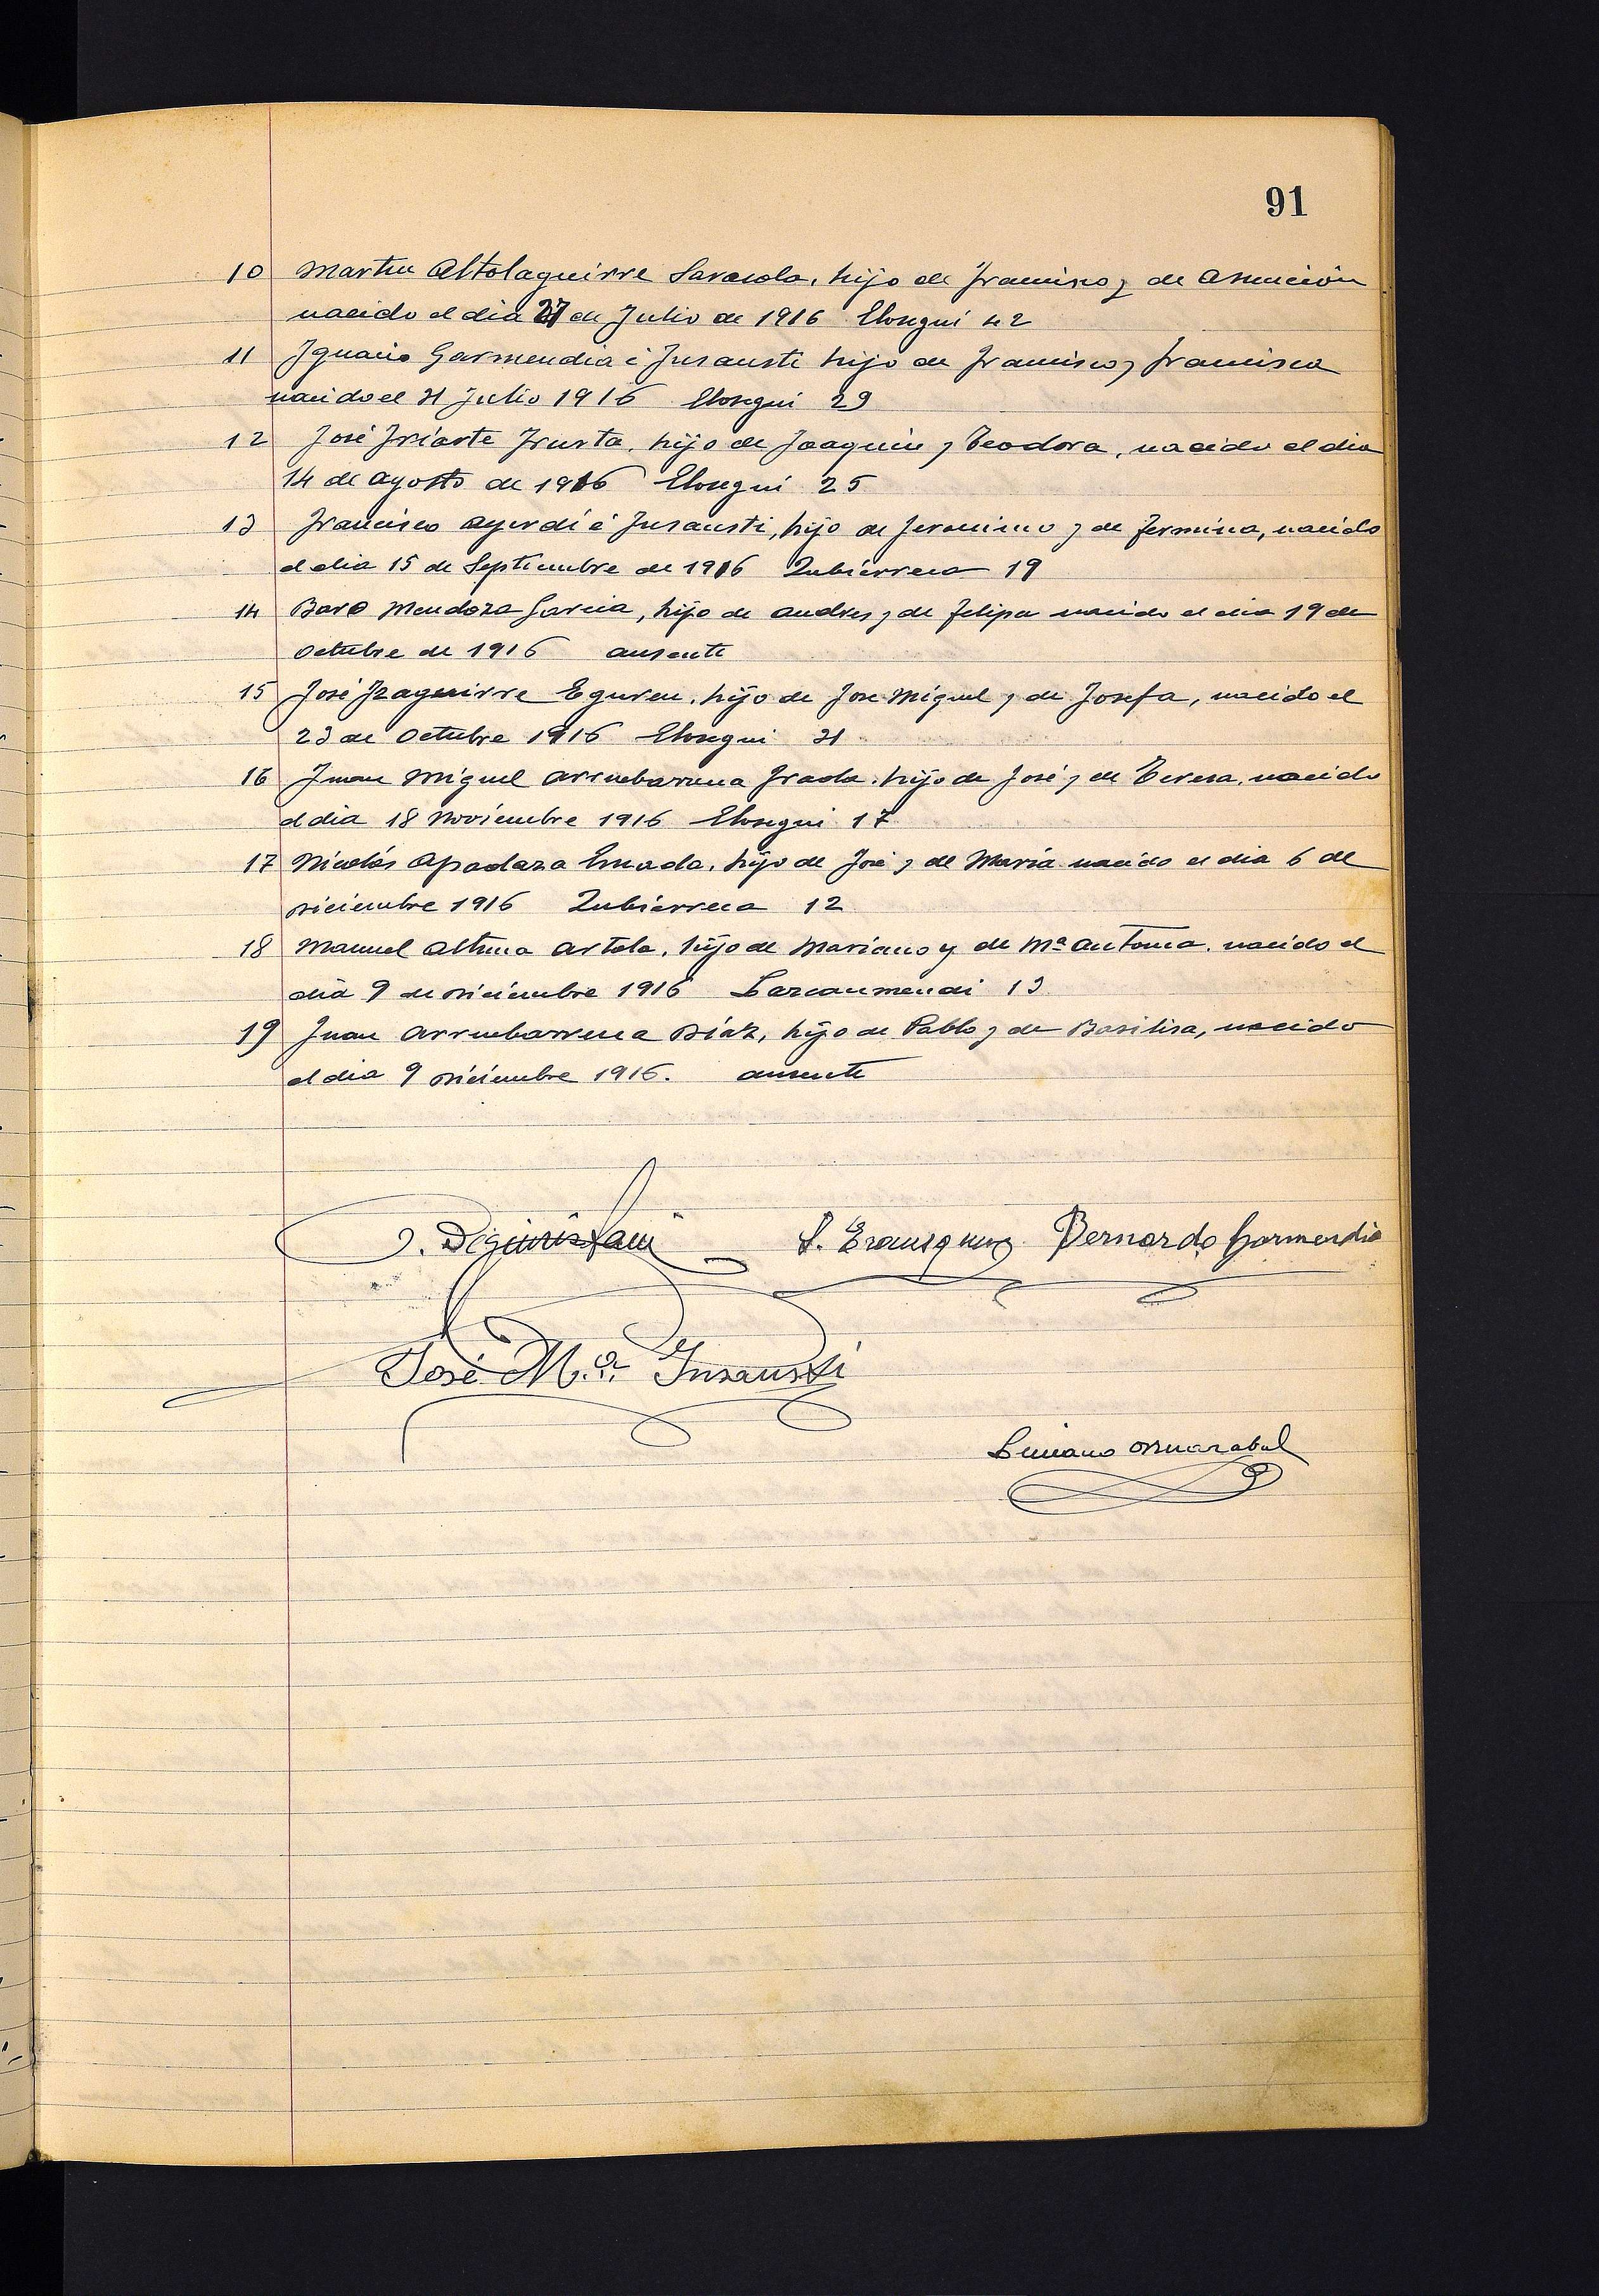 91
10 Martin Altolaguirre Sarasola, hijo de Francisco y de Asunción
nacido el dia 27 de Julio de 1916 Elosegui 42
11 Ignacio Garmendia é Insausti hijo de Francisco y Francisca
nacido el 31 Julio 1916 Elosegui 29
12 José Iriarte Irusta, hijo de Joaquin y Teodora, nacido el dia
14 de Agosto de 1916 Elosegui 25
13 Francisco Ayerdi é Insausti, hijo de Jeronimo y de Fermina, nacido
el dia 15 de Septiembre de 1916 Zubierreca 19
14 Mendoza Garcia, hijo de Andres y de Felipa nacido el dia 19 de
Octubre de 1916 ausente
15 José Izaguirre Eguren, hijo de Jose Miguel y de Josefa, nacido el
23 de Octubre 1916 Elosegui 31
16 Juan Miguel Arruebarrena hijo de José y de Teresa, nacido
el dia 18 Noviembre 1916 Elosegui 17
17 Nicolás Apaolaza hijo de José y de María nacido el dia 6 de
Diciembre 1916 Zubierreca 12
18 Manuel Altuna Artola, hijo de Mariano y de Mª Antonia, nacido el
dia 9 de Diciembre 1916 Larcaumendi 13
19 Juan Arruebarrena Diaz, hijo de Pablo y de Basilisa, nacido
el dia 9 Diciembre 1916. ausente
S. Erausquin Bernardo Garmendia
José M.ª Insausti
Luciano